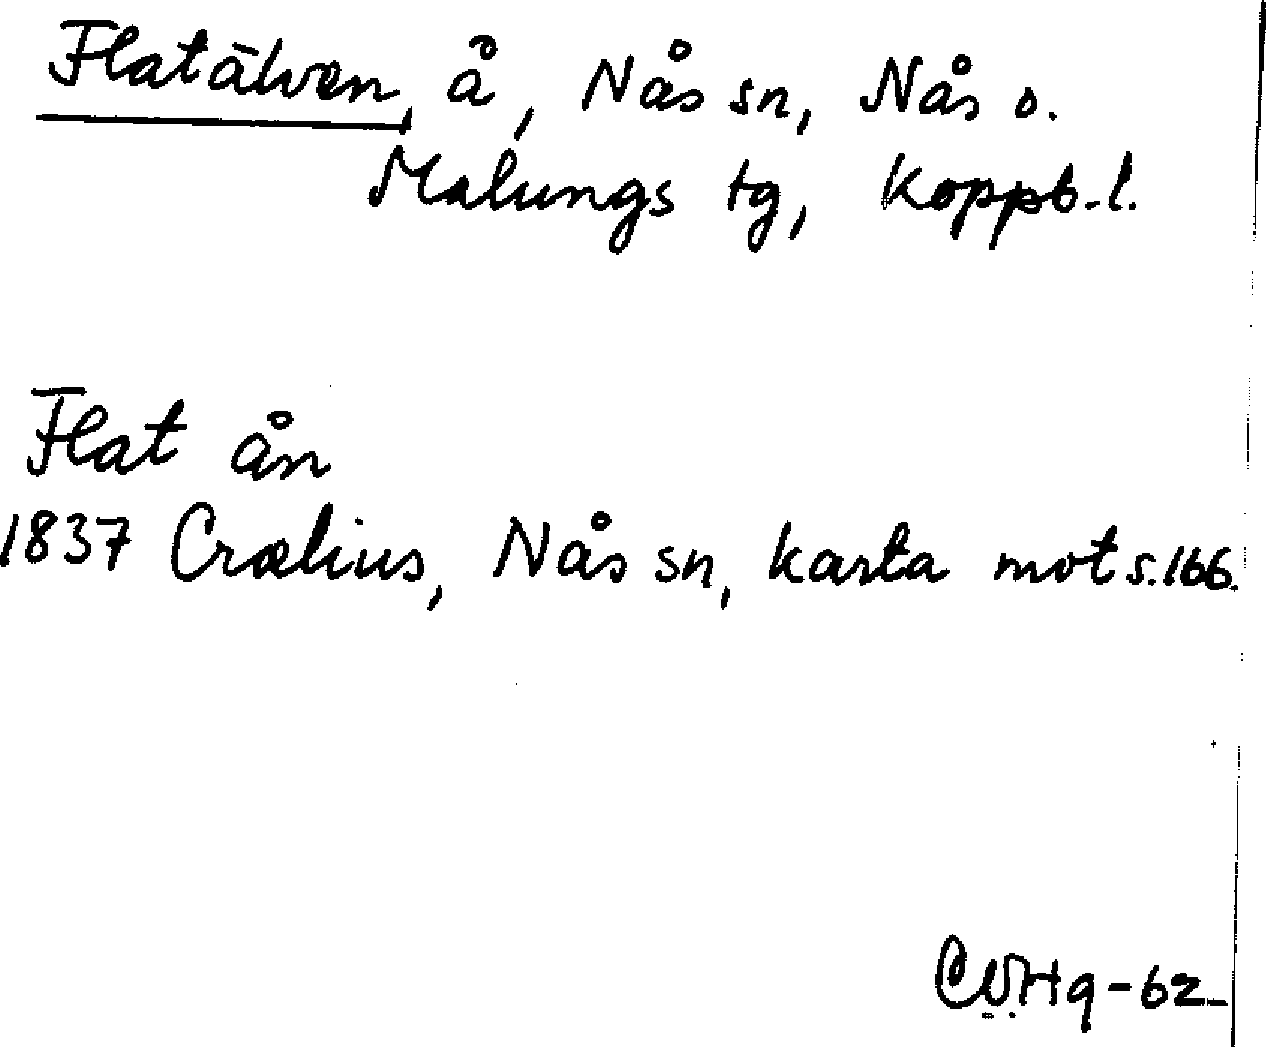 Flatälven, å, Nås sn, Nås o.
Malungs tg, Koppb.l.
Flat ån
1837 Crælius, Nås sn, karta mot s.166.